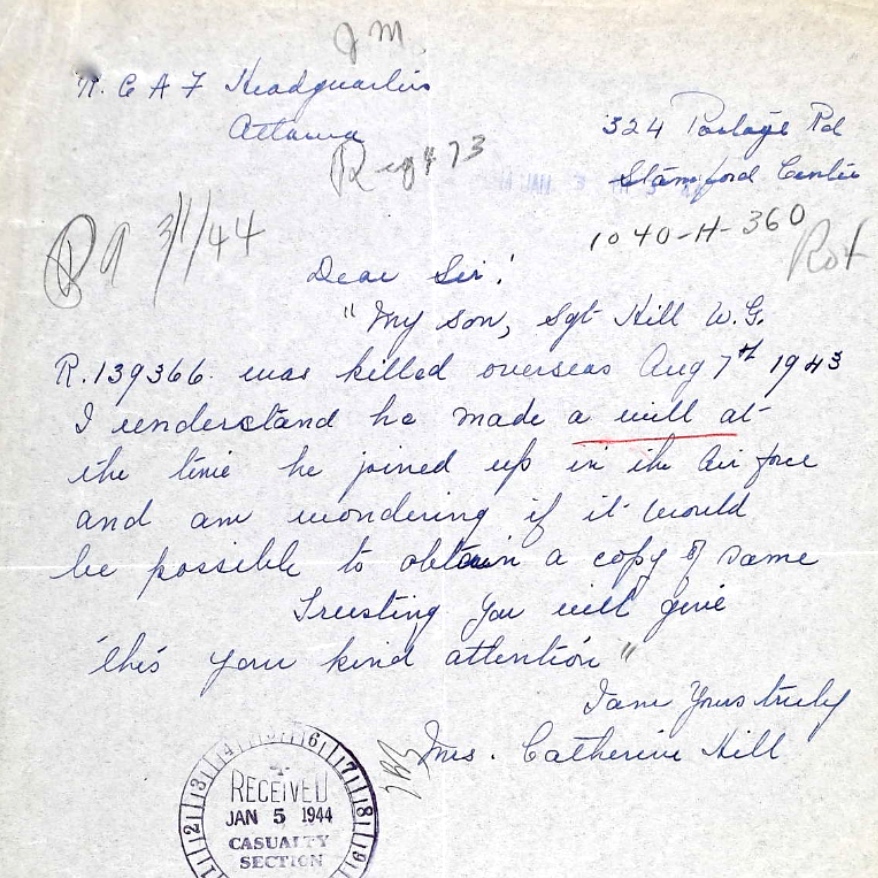 J M.
R. C A F Headquarters
Ottawa
324 Portage Rd
Stamford Centre
Reg 473
1040-H-360
PA 3/1/44
Dear Sir!
"My son, Sgt Hill W.G.
R.139366. was killed overseas Aug 7th 1943
I understand he made a will at
the time he joined up in the Air force
and am wondering if it would
be possible to obtain a copy of same
Trusting you will give
this your kind attention"
I am Yours truly
Mrs. Catherine Hill
RECEIVED
JAN 5 1944
CASUALTY
SECTION